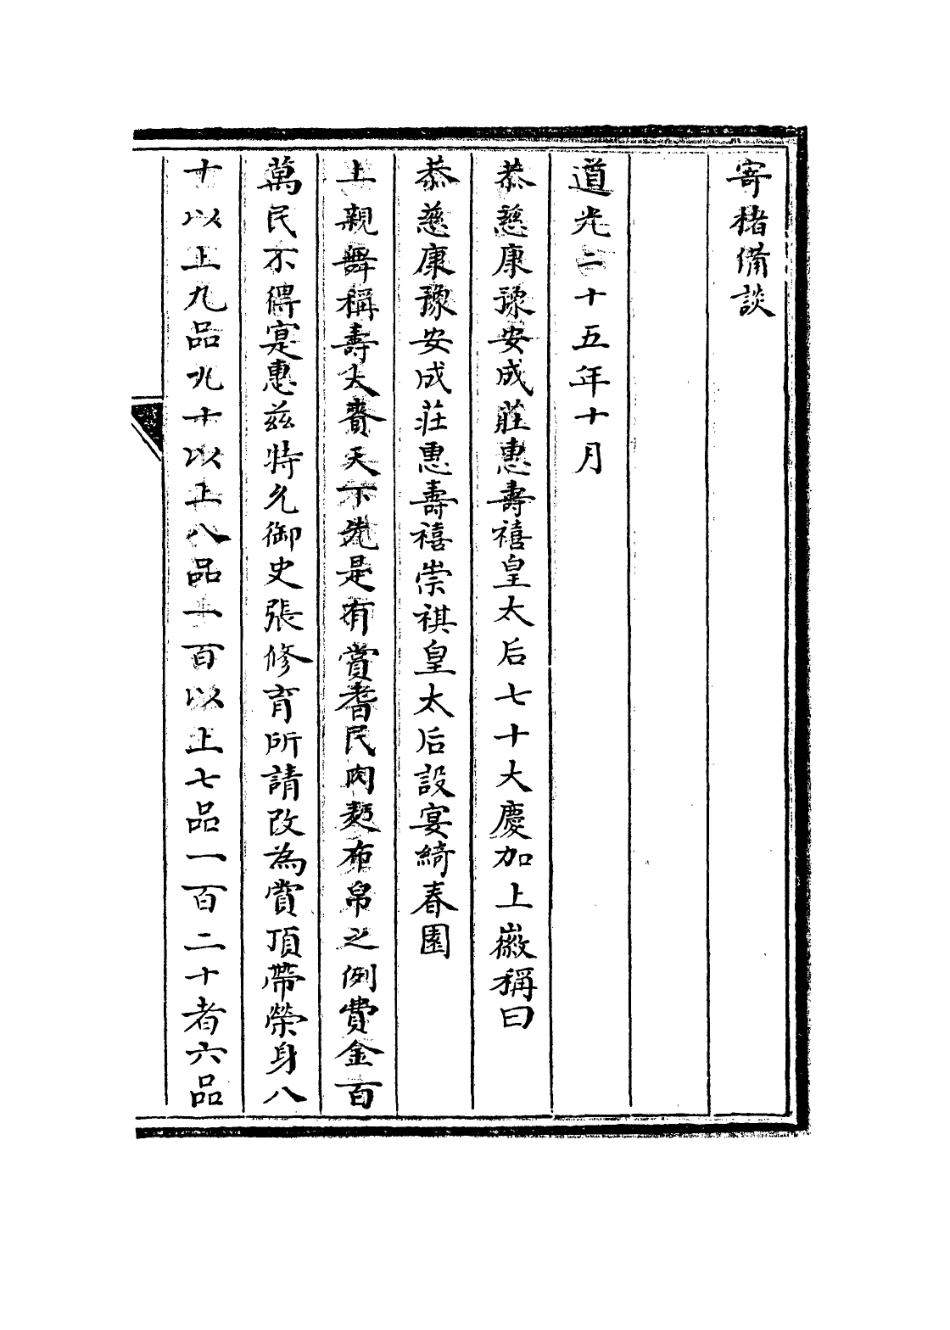 寄楮備談
道光二十五年十月
恭慈康豫安成莊惠壽禧皇太后七十大慶加上徽稱曰
恭慈康豫安成莊惠壽禧崇祺皇太后設宴綺春園
上親舞稱壽大賚天下先是有賞耆民肉麫布帛之例費金百
萬民不得寔惠茲特允御史張修育所請改為賞頂帶榮身八
十以上九品九十以上八品一百以上七品一百二十者六品